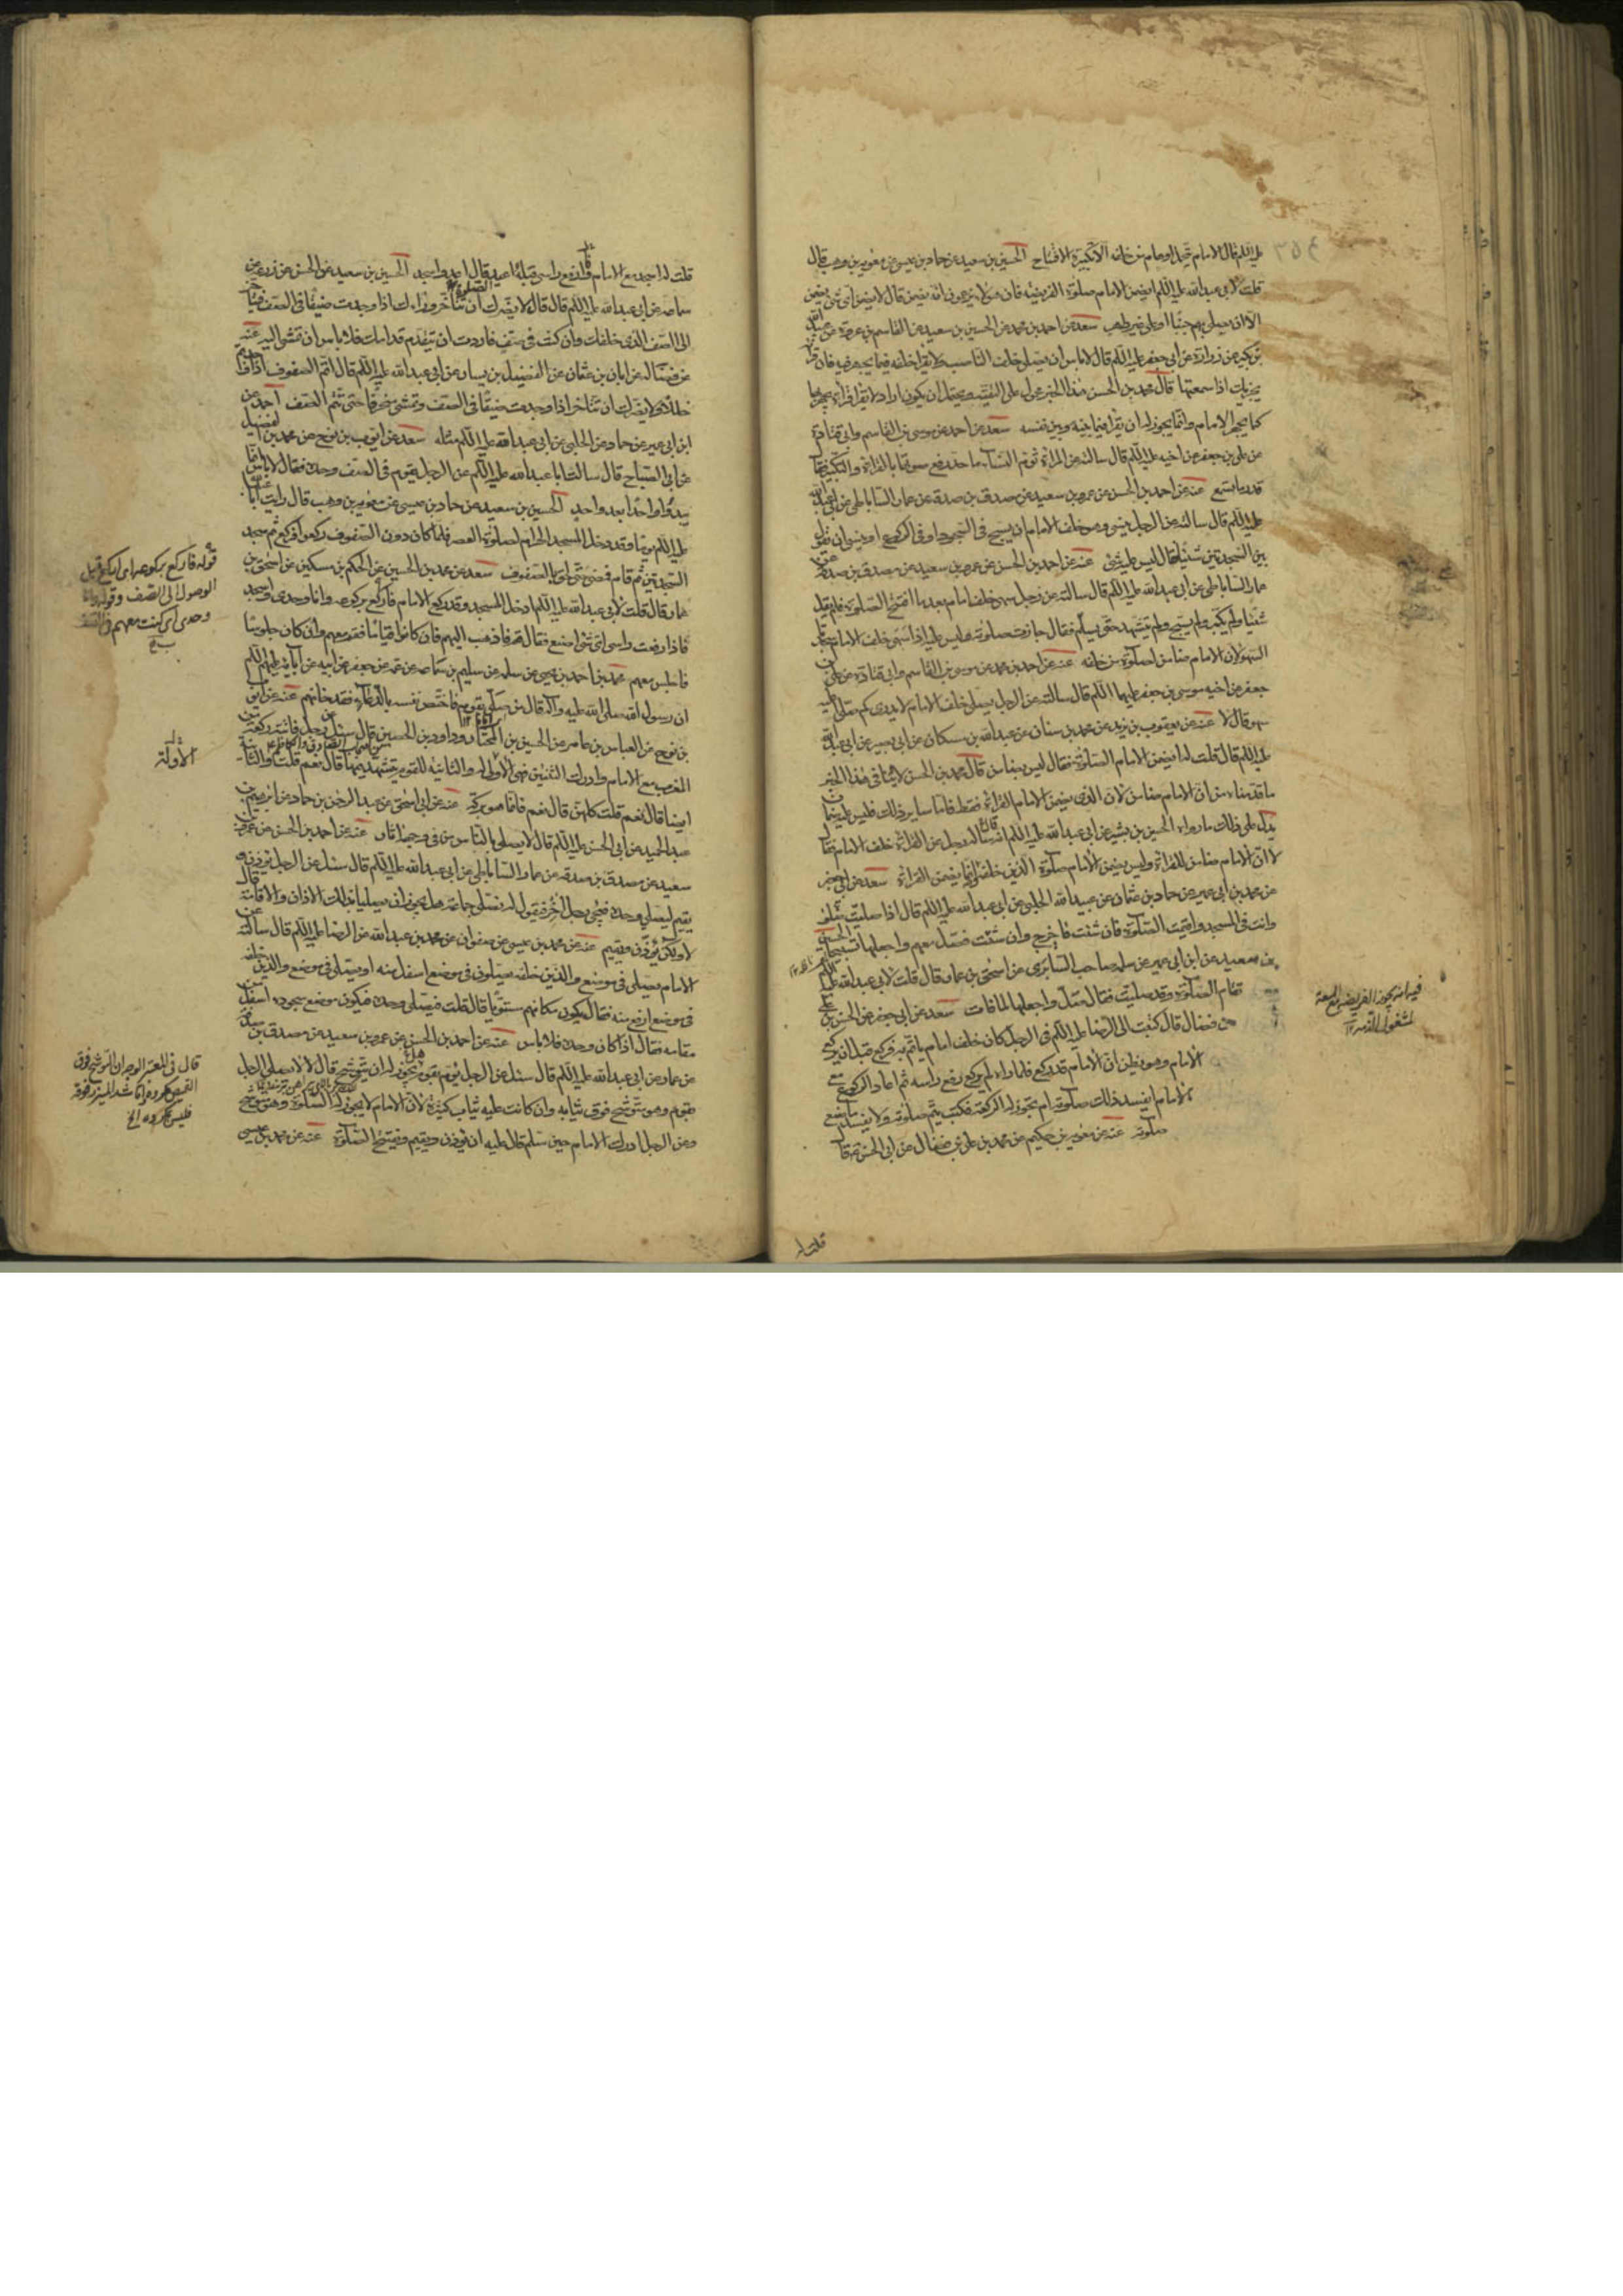 عليه السلام قال الامام يحمل اوهام من خلفه الا تكبيرة الافتتاح الحسين بن سعيد عن حماد بن عيسى عن معوية بن وهب قال
قلت لابي عبد الله عليه السلام ايضمن الامام صلوة الفريضة فان هؤلاء يزعمون انه يضمن قال لا يضمن اي شئ يضمن
الا ان يصلي بهم جنبا او على غير طهر سعد عن احمد بن محمد عن الحسين بن سعيد عن القاسم بن عروة عن عبد الله
بن بكير عن زرارة عن ابي جعفر عليه السلام قال لا باس ان تصلي خلف الناصب ولا تقرا خلفه فيما يجهر فيه فان قراءته
يجزيك اذا سمعتها قال محمد بن الحسن هذا الخبر محمول على التقية ويحتمل ان يكون اراد لا تقرا قراءة يجهر بها
كما يجهر الامام وانما يجوز له ان يقرا فيما بينه وبين نفسه سعد عن احمد عن موسى بن القاسم وابي قتادة
عن علي بن جعفر عن اخيه عليه السلام قال سالته عن المراة تؤم النساء ما حد رفع صوتها بالقراءة والتكبير فقال
قدر ما تسمع عنه عن احمد بن الحسن عن عمرو بن سعيد عن مصدق بن صدقة عن عمار الساباطي عن ابي عبد الله
عليه السلام قال سالته عن الرجل ينسى وهو خلف الامام ان يسبح في السجود او في الركوع او ينسى ان يقول
بين السجدتين شيئا فقال ليس عليه شئ عنه عن احمد بن الحسن عن عمرو بن سعيد عن مصدق بن صدقة عن
عمار الساباطي عن ابي عبد الله عليه السلام قال سالته عن رجل سهى خلف امام بعد ما افتتح الصلوة فلم يقل
شيئا ولم يكبر ولم يسبح ولم يتشهد حتى يسلم فقال جازت صلوته وليس عليه اذا سهى خلف الامام سجدتا
السهو لان الامام ضامن لصلوة من خلفه عنه عن احمد بن محمد عن موسى بن القاسم وابي قتادة عن علي بن
جعفر عن اخيه موسى بن جعفر عليهما السلام قال سالته عن الرجل يصلي خلف الامام لا يدري كم صلى هل عليه
سهو قال لا عنه عن يعقوب بن يزيد عن محمد بن سنان عن عبد الله بن مسكان عن ابي بصير عن ابي عبد الله
عليه السلام قال قلت له ايضمن الامام الصلوة فقال ليس بضامن قال محمد بن الحسن لا ينافي هذا الخبر
ما قدمناه من ان الامام ضامن لان الذي يضمن الامام القراءة فقط فاما ساير ذلك فليس عليه ضمان
يدل على ذلك ما رواه الحسين بن بشير عن ابي عبد الله عليه السلام انه سأله رجل عن القراءة خلف الامام فقال
لا ان الامام ضامن للقراءة وليس يضمن الامام صلوة الذين خلفه انما يضمن القراءة سعد عن ابي جعفر
عن محمد بن ابي عمير عن حماد بن عثمان عن عبيد الله الحلبي عن ابي عبد الله عليه السلام قال اذا صليت صلوة
وانت في المسجد واقيمت الصلوة فان شئت فاخرج وان شئت فصل معهم واجعلها تسبيحا الحسين
بن سعيد عن ابن ابي عمير عن سلمة صاحب السابري عن اسحق بن عمار قال قلت لابي عبد الله عليه السلام
تقام الصلوة وقد صليت فقال صل واجعلها لما فات سعد عن ابي جعفر عن الحسن بن علي
بن فضال قال كتبت الى الرضا عليه السلام في الرجل كان خلف امام ياتم به فركع قبل ان يركع
الامام وهو يظن ان الامام قد ركع فلما راه لم يركع رفع راسه ثم اعاد الركوع مع
الامام ايفسد ذلك صلوته ام يجوز له الركعة فكتب يتم صلوته ولا يفسد ما صنع
صلوته عنه عن معوية بن حكيم عن محمد بن علي بن فضال عن ابي الحسن ع قال
فيه انه يجوز الفريضة مع الجمعة
لمشغول الذمة
قلت له
قلت له اسجد مع الامام فارفع راسي قبله اعيد قال اعد واسجد الحسين بن سعيد عن الحسن عن زرعة عن
سماعة عن ابي عبد الله عليه السلام قال قال لا يضرك ان تتأخر وراءك اذا وجدت ضيقا في الصف فتأخر
الى الصف الذي خلفك وان كنت في صف فاردت ان تتقدم قدامك فلا باس ان تمشي اليه عنه
عن فضالة عن ابان بن عثمان عن الفضيل بن يسار عن ابي عبد الله عليه السلام قال اتموا الصفوف اذا رايتم
خللا ولا يضرك ان تتاخر اذا وجدت ضيقا في الصف وتمشي منحرفا حتى تتم الصف احمد عن
ابن ابي عمير عن حماد عن الحلبي عن ابي عبد الله عليه السلام مثله سعد عن ايوب بن نوح عن محمد بن الفضيل
عن ابي الصباح قال سالت ابا عبد الله عليه السلام عن الرجل يقوم في الصف وحده فقال لا باس انما
يبدؤا واحدا بعد واحد الحسين بن سعيد عن حماد بن عيسى عن معوية بن وهب قال رايت ابا عبد الله
عليه السلام يوما وقد دخل المسجد الحرام لصلوة العصر فلما كان دون الصفوف ركعوا فركع ثم سجد
السجدتين ثم قام فمضى حتى لحق بالصفوف سعد عن محمد بن الحسين عن الحكم بن مسكين عن اسحق بن
عمار قال قلت لابي عبد الله عليه السلام ادخل المسجد وقد ركع الامام فاركع بركوعه وانا وحدي واسجد
فاذا رفعت راسي اي شئ اصنع فقال قم فاذهب اليهم فان كانوا قياما فقم معهم وان كان جلوسا
فاجلس معهم محمد بن احمد بن يحيى عن سلمة عن سليم بن سماعة عن عمه عن جعفر عن ابيه عن آبائه عليهم السلام
ان رسول الله صلى الله عليه وآله قال من صلى بقوم فاختص نفسه بالدعاء فقد خانهم عنه عن ايوب
بن نوح عن العباس بن عامر عن الحسين بن المختار وداود بن الحصين قال سئل عن رجل فاتته ركعة من
المغرب مع الامام وادرك الثنتين فهي الاولى له والثانية للقوم يتشهد فيها قال نعم قلت والثانية
ايضا قال نعم قلت كلهن قال نعم فانما هو بركة عنه عن ابي اسحق عن عبد الرحمن بن حماد عن ابرهيم بن
عبد الحميد عن ابي الحسن عليه السلام قال لا يصلي بالناس من في وجهه اثار عنه عن احمد بن الحسن عن عمرو بن
سعيد عن مصدق بن صدقة عن عمار الساباطي عن ابي عبد الله عليه السلام قال سئل عن الرجل يؤذن و
يقيم ليصلي وحده فيجئ رجل آخر فيقول له نصلي جماعة هل يجوز ان يصليا بذلك الاذان والاقامة قال
لا ولكن يؤذن ويقيم عنه عن محمد بن عيسى عن صفوان عن محمد بن عبد الله عن الرضا عليه السلام قال سالته عن
الامام يصلي في موضع والذين خلفه يصلون في موضع اسفل منه او يصلي في موضع والذين خلفه
في موضع ارفع منه فقال يكون مكانهم مستويا قال قلت فيصلي وحده فيكون موضع سجوده اسفل من
مقامه فقال اذا كان وحده فلا باس عنه عن احمد بن الحسن عن عمرو بن سعيد عن مصدق بن صدقة
عن عمار عن ابي عبد الله عليه السلام قال سئل عن الرجل يؤم بقوم هل يجوز له ان يتوشح قال لا لا يصلي الرجل
بقوم وهو متوشح فوق ثيابه وان كانت عليه ثياب كثيرة لان الامام لا يجوز له الصلوة وهو متوشح
وعن الرجل ادرك الامام حين سلم قال عليه ان يؤذن ويقيم ويفتتح الصلوة عنه عن محمد بن عيسى
قوله فاركع بركوعه اي اركع قبل
الوصول الى الصف وقوله وانا
وحدي اي كنت معهم في الصف
الاولة
قال في المعتبر الوجه ان التوشح فوق
القميص مكروه واما شد الميزر فوقه
فليس بمكروه الخ